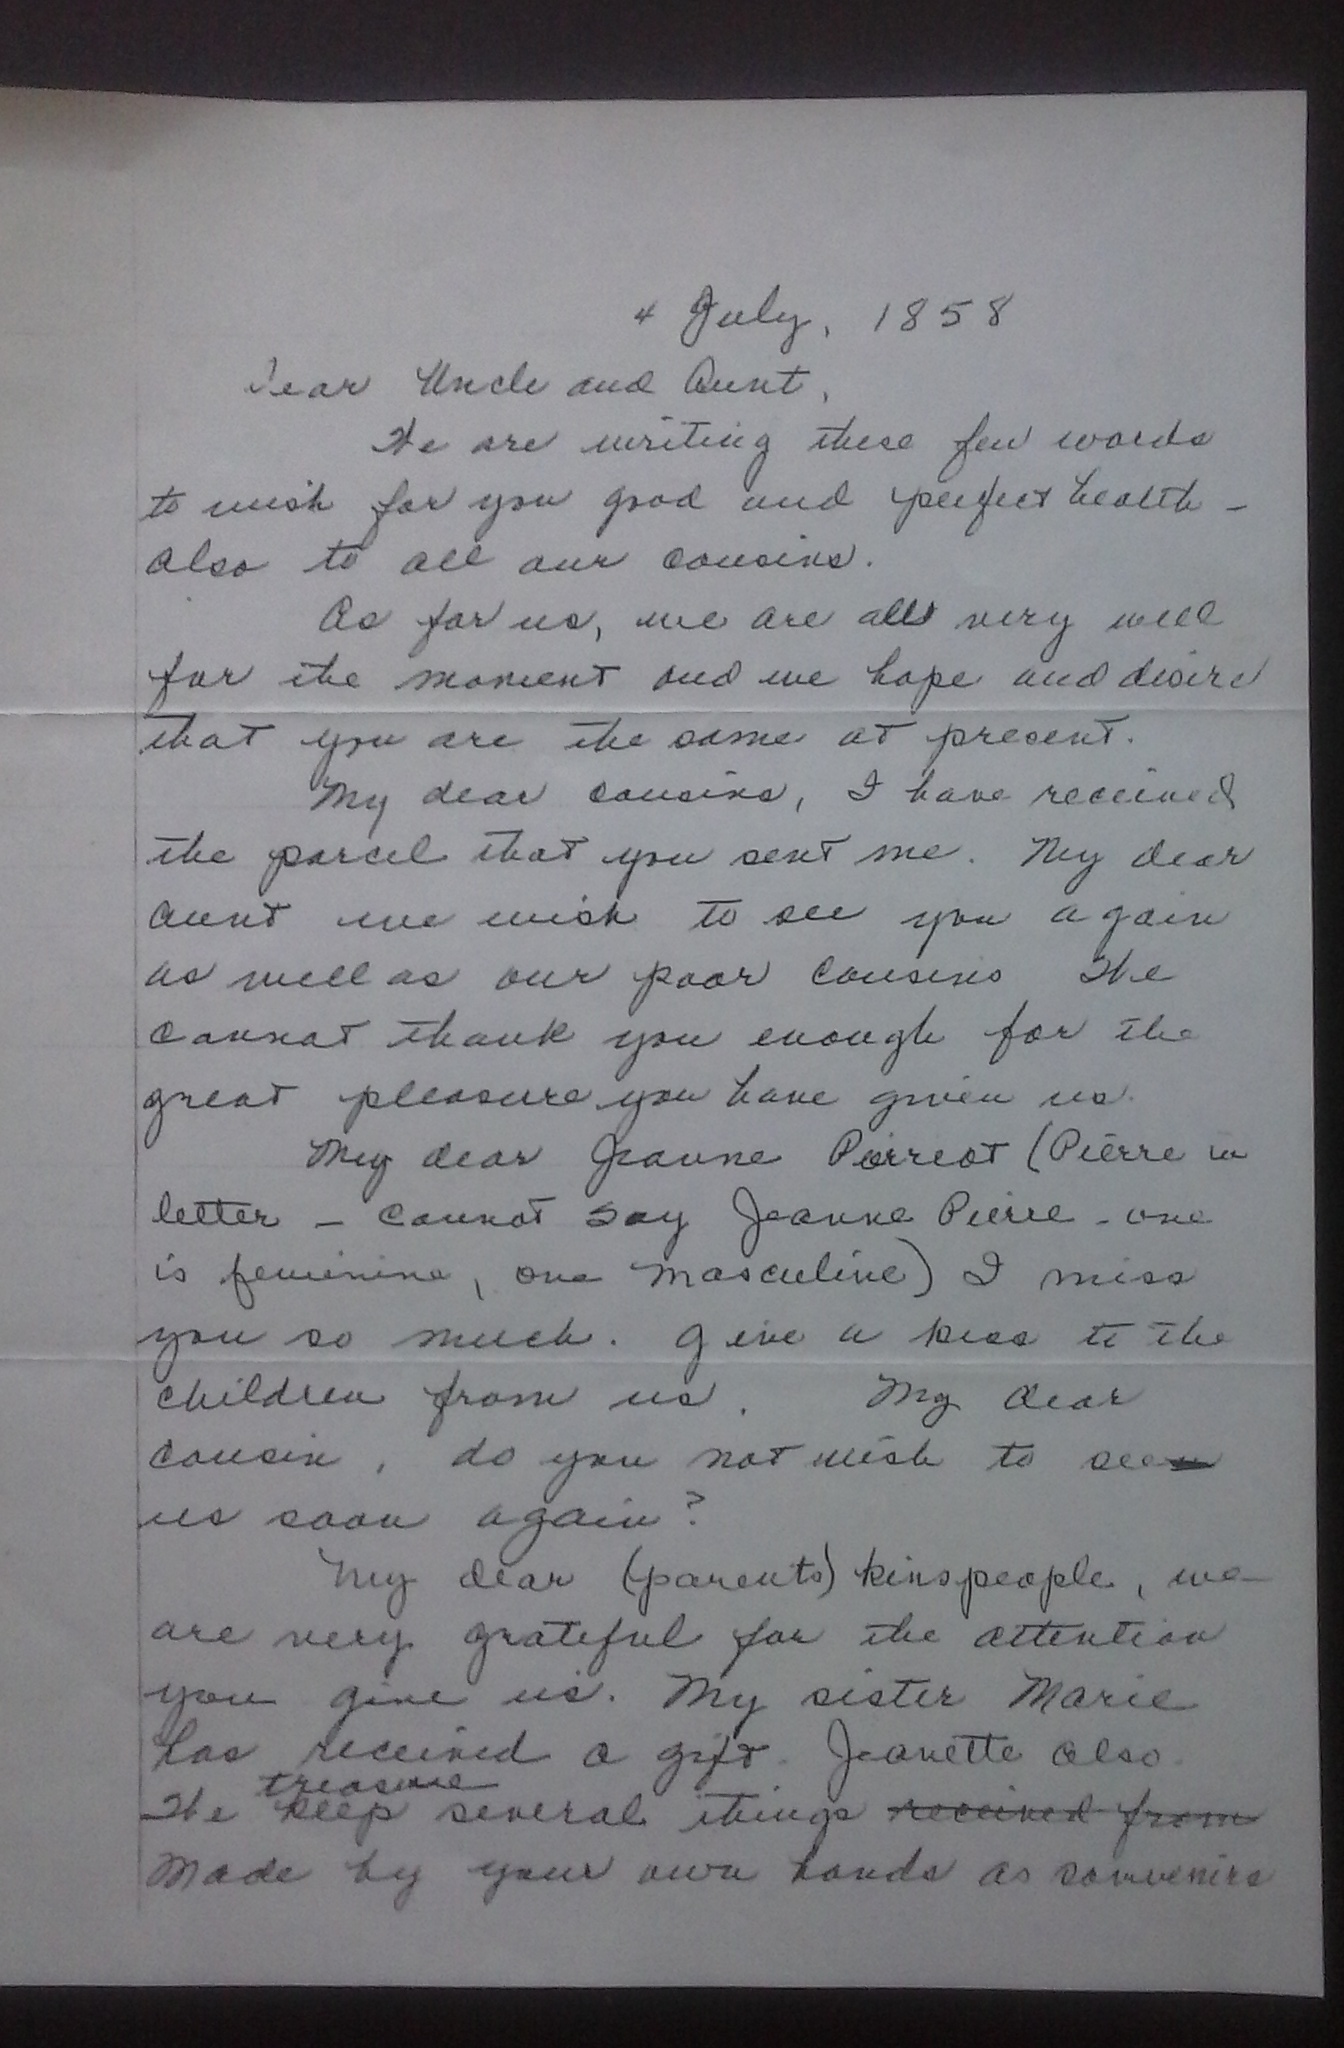 4 July, 1858
Dear Uncle and Aunt,
We are writing these few words
to wish for you good and perfect health -
also to all our cousins.
As for us, we are all very well
for the moment and we hope and desire
that you are the same at present.
My dear cousins, I have received
the parcel that you sent me. My dear
aunt we wish to see you again
as well as our poor cousins We
cannot thank you enough for the
great pleasure you have given us.
My dear Jeanne Pierreot (Pierre in
letter - cannot say Jeanne Pierre - one
is feminine, one masculine) I miss
you so much. Give a kiss to the
children from us. My dear
cousin, do you not wish to see
us soon again?
My dear (parents) kinspeople, we
are very grateful for the attention
you give us. My sister Marie
has received a gift. Jeanette also.
treasure
We keep several things received from
made by your own hands as souvenirs